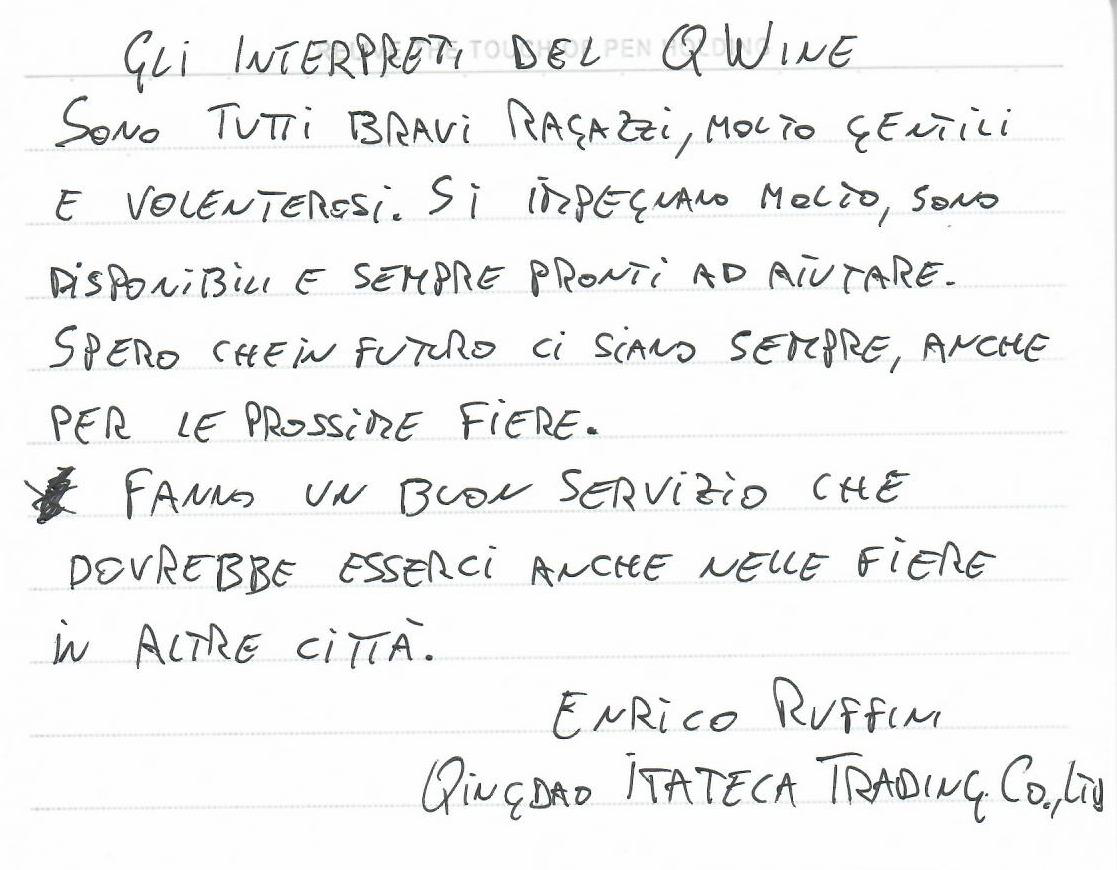 GLI INTERPRETI DEL QWINE
SONO TUTTI BRAVI RAGAZZI, MOLTO GENTILI
E VOLENTEROSI. SI IMPEGNANO MOLTO, SONO
DISPONIBILI E SEMPRE PRONTI AD AIUTARE.
SPERO CHE IN FUTURO CI SIANO SEMPRE, ANCHE
PER LE PROSSIME FIERE.
FANNO UN BUON SERVIZIO CHE
DOVREBBE ESSERCI ANCHE NELLE FIERE
IN ALTRE CITTÀ.
ENRICO RUFFINI
QINGDAO ITATECA TRADING. CO., LTD